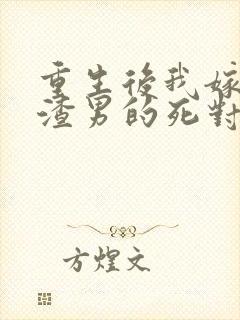 重生後我嫁
渣男的死對
方煌文